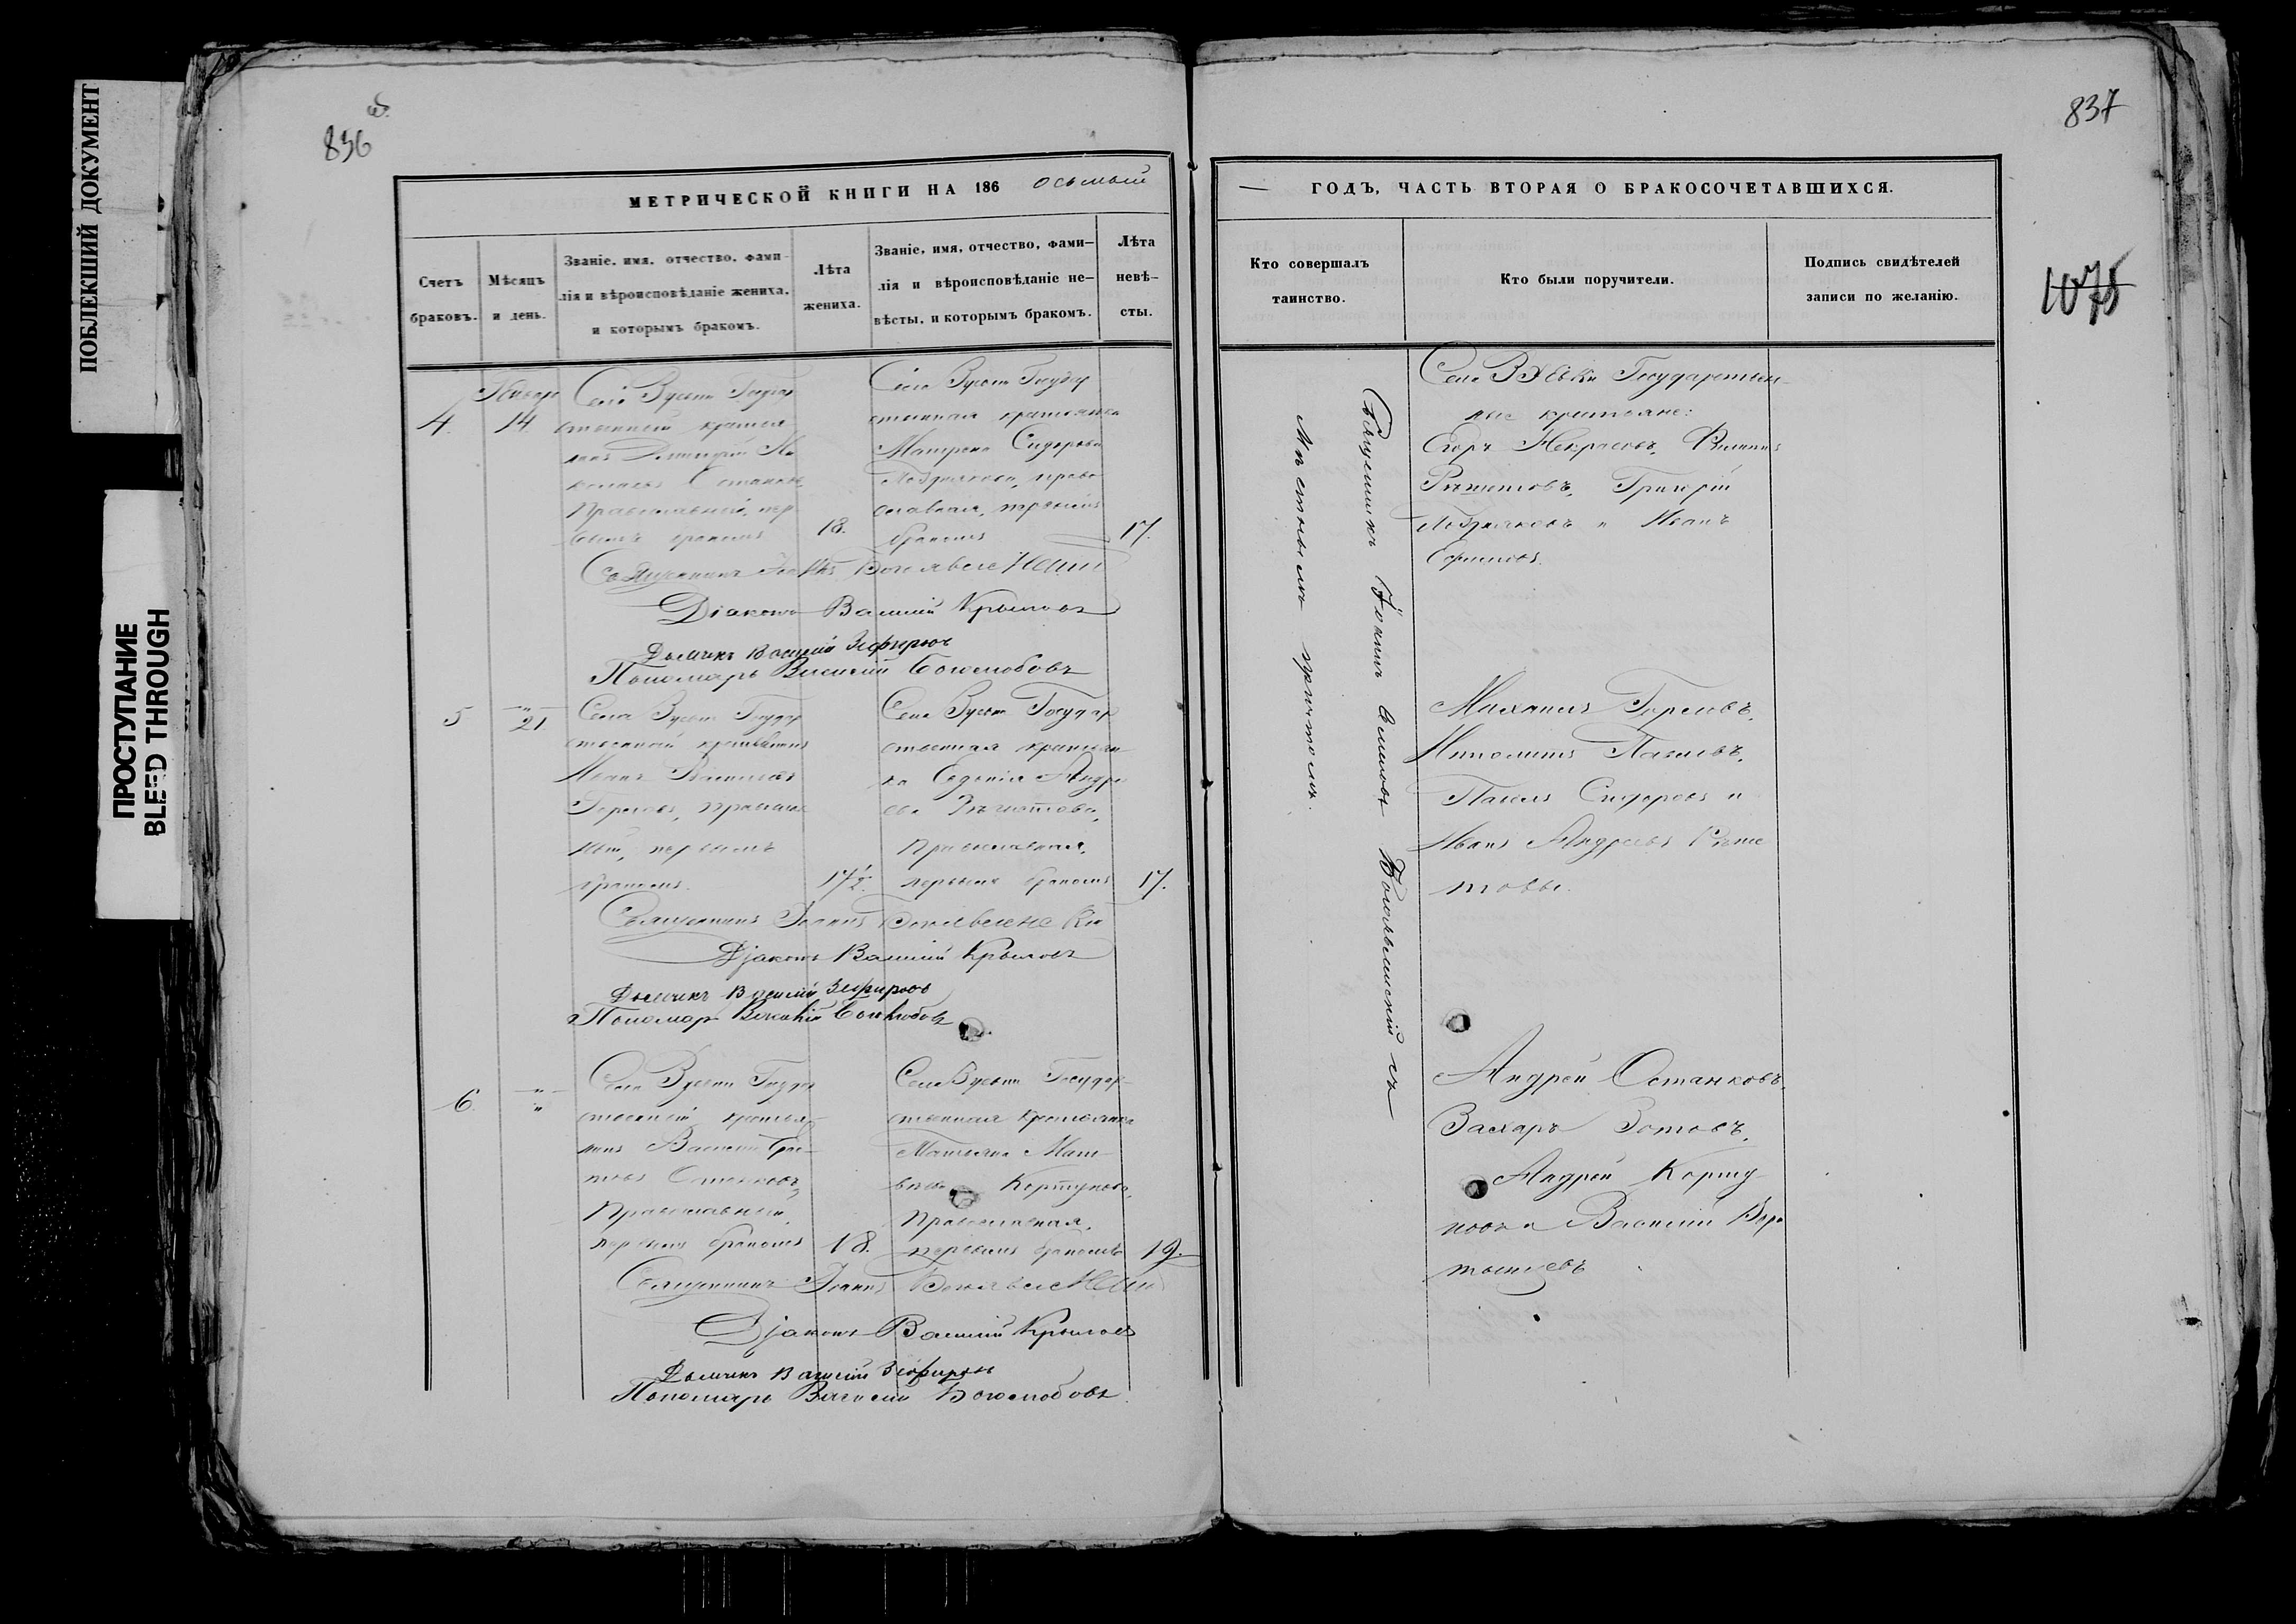 ПОБЛЕКШИЙ ДОКУМЕНТ
ПРОСТУПАНИЕ
BLEED THROUGH
836 об.
МЕТРИЧЕСКОЙ КНИГИ НА 186 осьмый
Счетъ браковъ.
Мѣсяцъ и день.
Званіе, имя, отчество, фами-
лія и вѣроисповѣданіе жениха,
и которымъ бракомъ.
Лѣта
жениха.
Званіе, имя, отчество, фами-
лія и вѣроисповѣданіе не-
вѣсты, и которымъ бракомъ.
Лѣта
невѣ-
сты.
4.
Января
14.
Села Государ
ственный крестья
нинъ Димитрій Ни
колаевъ
Православный, пер
вымъ бракомъ
18.
Села Государ
ственная крестьянка
Матрена Сидорова
право
славная, первымъ
бракомъ
17.
Священникъ Іоаннъ Богоявленскій
Діаконъ Василій Крыловъ
Дьячикъ Василій Зефировъ
Пономарь Василій Боголюбовъ
5
21.
Села Государ
ственный крестьянинъ
Иванъ Васильевъ
Гореловъ, православ
ный, первымъ
бракомъ.
17½.
Села Государ
ственная крестьян
ка Евдокія Андре
ева
Православная,
первымъ бракомъ
17.
Священникъ Іоаннъ Богоявленскій
Діаконъ Василій Крыловъ
Дьячикъ Василій Зефировъ
Пономарь Василій Боголюбовъ
6.
Села Государ
ственный крестья-
нинъ Василій
Православный,
первымъ бракомъ
18.
Села Государ-
ственная крестьянка
Татьяна Мат-
вѣева Кортунова,
Православная,
первымъ бракомъ
19.
Священникъ Іоаннъ Богоявленскій
Діаконъ Василій Крыловъ
Дьячикъ Василій Зефировъ
Пономарь Василій Боголюбовъ
837
1075
— ГОДЪ, ЧАСТЬ ВТОРАЯ О БРАКОСОЧЕТАВШИХСЯ.
Кто совершалъ
таинство.
Кто были поручители.
Подпись свидѣтелей
записи по желанію.
Священникъ Іоаннъ Богоявленскій съ
мѣстнымъ причтомъ.
Села Государствен-
ные крестьяне:
Егоръ Некрасовъ, Филиппъ
Григорій
и Иванъ
Ефимовъ.
Михаилъ Гореловъ,
Ипполитъ Павловъ,
Павелъ Сидоровъ и
Иванъ Андреевъ
товы.
Андрей Останковъ,
Захаръ Зотовъ,
Андрей Корту-
новъ и Василій Воро